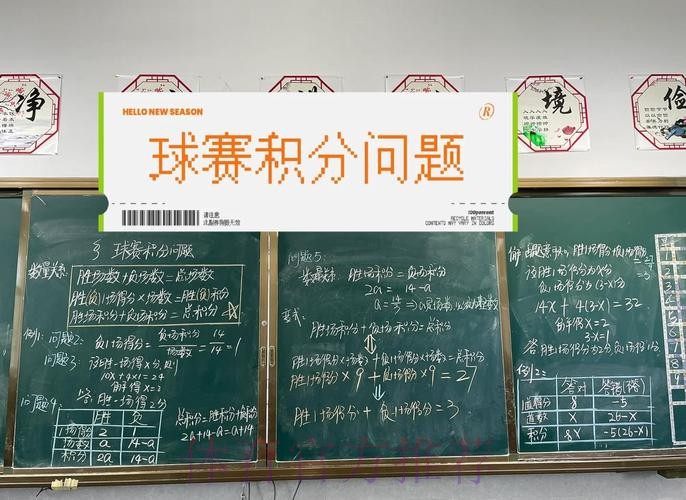 净
境
俭
HELLO NEW SEASON
R
球赛积分问题
请注意
此副券撕毁无效
100percent
RECYCLE MATERIALS
CONTENTS MAY VARY IN COLORS
球赛积分问题
数量关系:
胜场数+负场数=总场数
胜(负)1场得分×场数=胜(负)积分
胜场积分+负场积分=总积分
例1: 问题2:
负1场得分=负场积分/场数=14/14=1
问题3: 设胜一场得x分,
10x+4×1=24
解得x=2
答 胜一场得2分
问题4:
胜 负
得分 2 1
场数 a 14-a
积分 2a 14-a
总积分=胜积分+负积分
2a+14-a=a+14
问题5:
数量关系: 胜场积分=负场积分
2a=14-a
a=14/3
胜场积分+负场积分=总积分
胜1场得分×场数+负1场得分×场数=总积分
胜1场得分×9+负1场得分×9=27
胜1场得分+负1场得分=3
设胜1场得分为x分
负1场得分为(3-x)分
14x+4(3-x)=32
解得x=2
3-x=1
答 胜1场得分为2分, 负1场得分1分.
例2:
答对 答错(不答)
值得分 8 -5
道数 x 26-x
积分 8x -5(26-x)
体育官方推荐